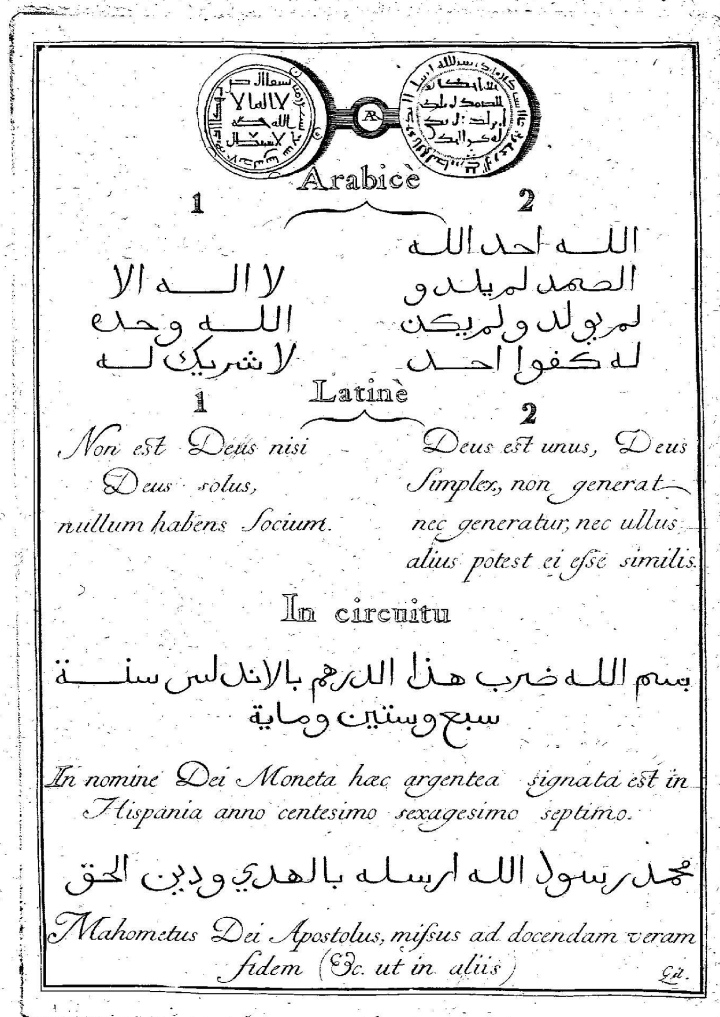 Æ
Arabicè
1 2
لا الــه الا
اللــه وحده
لا شريك لــه
اللــه احد الله
الصمد لم يلــد و
لم يولد ولم يكن
له كفوا احــد
Latinè
1 2
Non est Deus nisi
Deus solus,
nullum habens Socium.
Deus est unus, Deus
Simplex, non generat
nec generatur, nec ullus
alius potest ei esse similis.
In circuitu
بسم اللــه ضرب هذا الدرهم بالاندلس سنــة
سبع وستين وماية
In nomine Dei Moneta hæc argentea signata est in
Hispania anno centesimo sexagesimo septimo.
محمد رسول الله ارسله بالهدي ودين الحق
Mahometus Dei Apostolus, missus ad docendam veram
fidem (&c. ut in aliis)